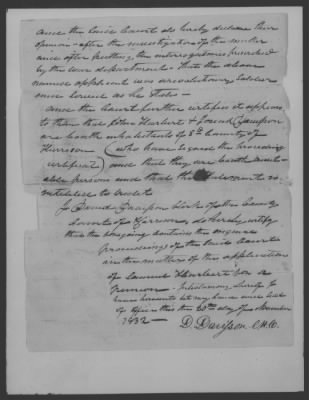 and the said Court do hereby declare their
opinion after the investigation of the matter
and after putting the interrogatories prescribed
by the war department that the above
named applicant was a revolutionary soldier
and served as he states —
and the Court further certifies it appears
to them that John Hurbert & Joseph
are both inhabitants of sd. County of
Harrison (who have signed the preceding
certificate) and that they are both credit-
able persons and that their Statement is
entitled to credit
I David Davisson Clerk of the County
Court of Harrison, do hereby certify
that the foregoing contains the original
proceedings of the said Court
in the matter of the application
of Samuel Hurbert for a
Pension. In testimony whereof I
have hereunto set my hand and seal
of office this the 20th day of November
1832 —
D. Davisson C.H.C.